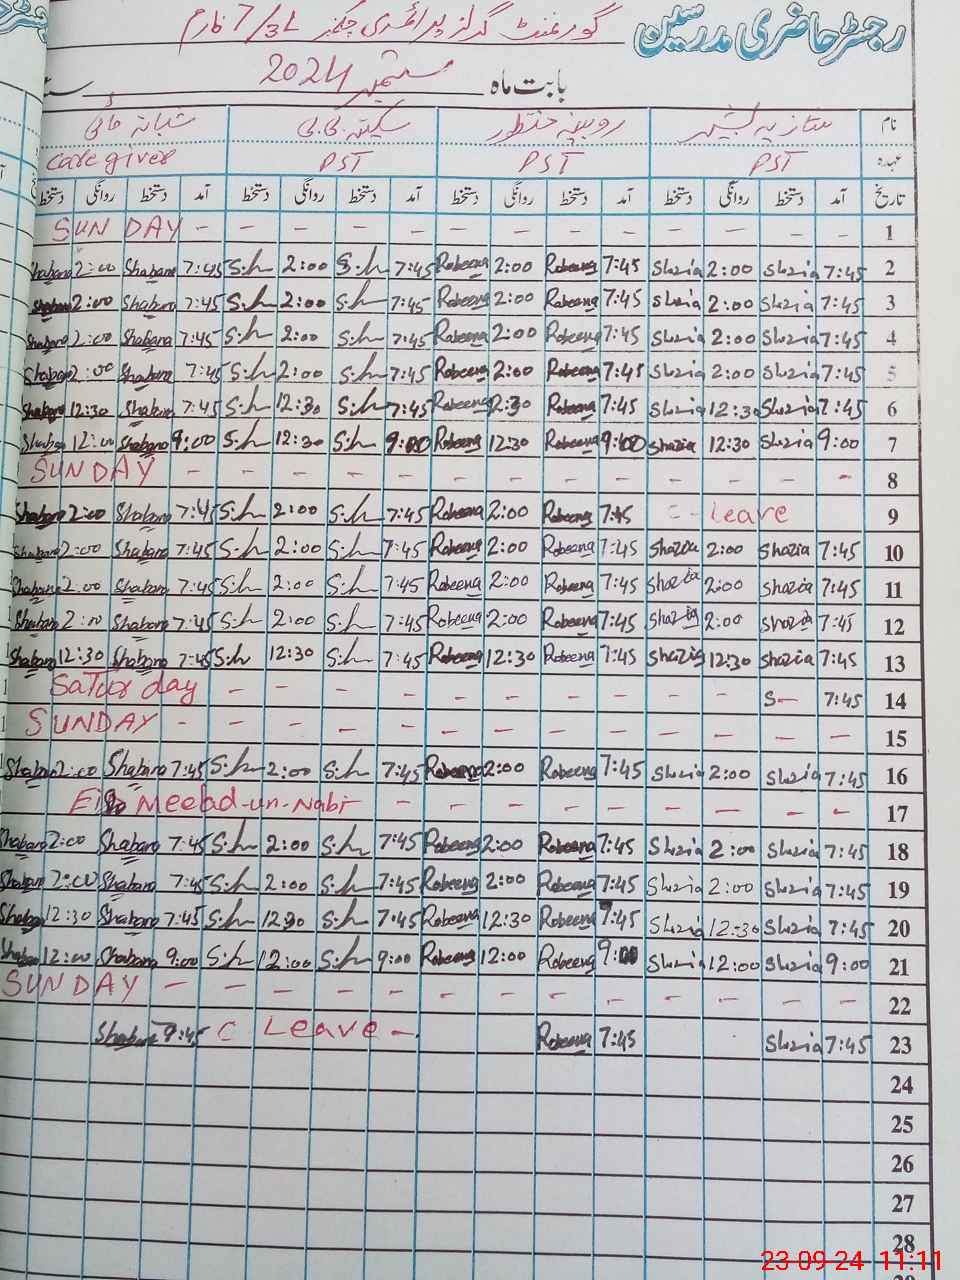 رجسٹر حاضری مدرسین گورنمنٹ گرلز پرائمری 7/3L فارم
بابت ماہ ستمبر 2024
نام شازیہ بشیر روبینہ منظور سکینہ بی بی شبانہ مائی
عہدہ PST PST PST Care giver
تاریخ آمد دستخط روانگی دستخط آمد دستخط روانگی دستخط آمد دستخط روانگی دستخط آمد دستخط روانگی دستخط
SUN DAY - - - - - - - - - - - - 1
Shabana 2:00 Shabana 7:45 S.h 2:00 S.h 7:45 Robeena 2:00 Robeena 7:45 Shazia 2:00 Shazia 7:45 2
Shabana 2:00 Shabana 7:45 S.h 2:00 S.h 7:45 Robeena 2:00 Robeena 7:45 Shazia 2:00 Shazia 7:45 3
Shabana 2:00 Shabana 7:45 S.h 2:00 S.h 7:45 Robeena 2:00 Robeena 7:45 Shazia 2:00 Shazia 7:45 4
Shabana 2:00 Shabana 7:45 S.h 2:00 S.h 7:45 Robeena 2:00 Robeena 7:45 Shazia 2:00 Shazia 7:45 5
Shabana 12:30 Shabana 7:45 S.h 12:30 S.h 7:45 Robeena 12:30 Robeena 7:45 Shazia 12:30 Shazia 7:45 6
Shabana 12:00 Shabana 9:00 S.h 12:30 S.h 9:00 Robeena 12:30 Robeena 9:00 Shazia 12:30 Shazia 9:00 7
SUNDAY - - - - - - - - - - - - - 8
Shabana 2:00 Shabana 7:45 S.h 2:00 S.h 7:45 Robeena 2:00 Robeena 7:45 C- Leave 9
Shabana 2:00 Shabana 7:45 S.h 2:00 S.h 7:45 Robeena 2:00 Robeena 7:45 Shazia 2:00 Shazia 7:45 10
Shabana 2:00 Shabana 7:45 S.h 2:00 S.h 7:45 Robeena 2:00 Robeena 7:45 Shazia 2:00 Shazia 7:45 11
Shabana 2:00 Shabana 7:45 S.h 2:00 S.h 7:45 Robeena 2:00 Robeena 7:45 Shazia 2:00 Shazia 7:45 12
Shabana 12:30 Shabana 7:45 S.h 12:30 S.h 7:45 Robeena 12:30 Robeena 7:45 Shazia 12:30 Shazia 7:45 13
Satur day - - - - - - - - - - S- 7:45 14
SUNDAY - - - - - - - - - - - - - 15
Shabana 2:00 Shabana 7:45 S.h 2:00 S.h 7:45 Robeena 2:00 Robeena 7:45 Shazia 2:00 Shazia 7:45 16
Eid Meelad-un-Nabi - - - - - - - - - 17
Shabana 2:00 Shabana 7:45 S.h 2:00 S.h 7:45 Robeena 2:00 Robeena 7:45 Shazia 2:00 Shazia 7:45 18
Shabana 2:00 Shabana 7:45 S.h 2:00 S.h 7:45 Robeena 2:00 Robeena 7:45 Shazia 2:00 Shazia 7:45 19
Shabana 12:30 Shabana 7:45 S.h 12:30 S.h 7:45 Robeena 12:30 Robeena 7:45 Shazia 12:30 Shazia 7:45 20
Shabana 12:00 Shabana 9:00 S.h 12:00 S.h 9:00 Robeena 12:00 Robeena 9:00 Shazia 12:00 Shazia 9:00 21
SUN DAY - - - - - - - - - - - - - 22
Shabana 7:45 C Leave - Robeena 7:45 Shazia 7:45 23
24
25
26
27
28
23 09 24 11:11